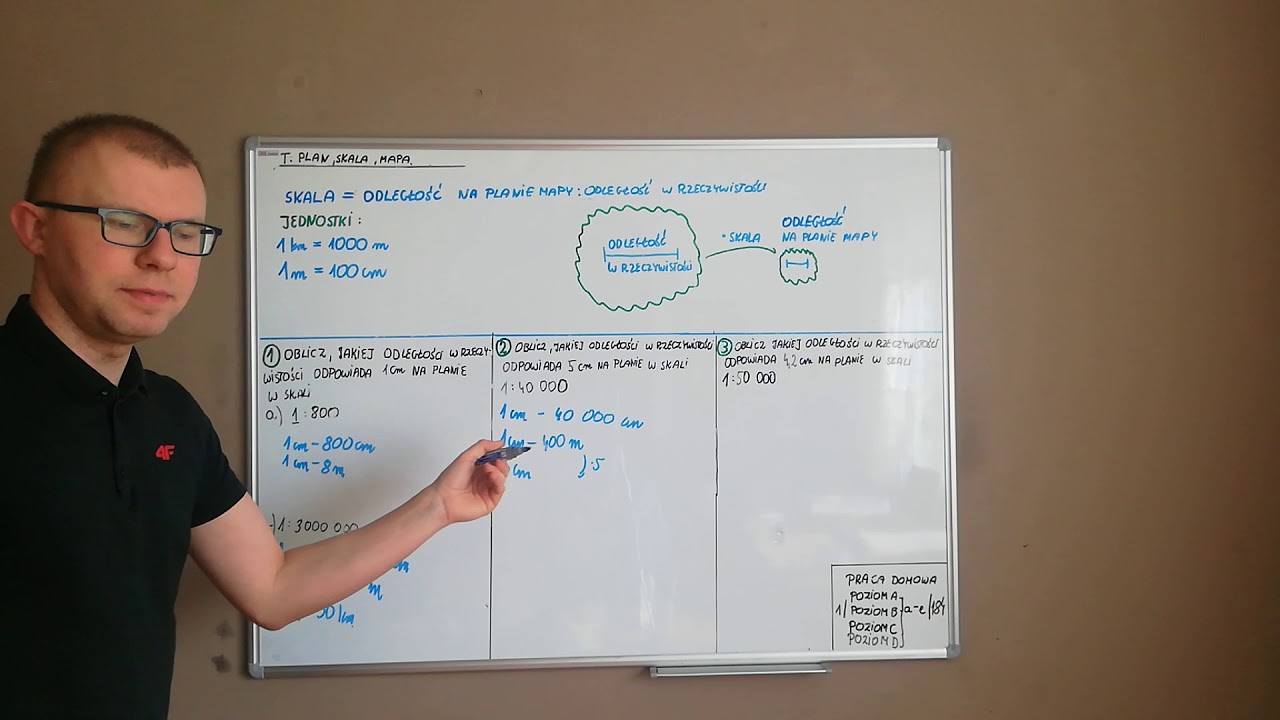 T. PLAN, SKALA, MAPA.
SKALA = ODLEGŁOŚĆ NA PLANIE MAPY : ODLEGŁOŚĆ W RZECZYWISTOŚCI
JEDNOSTKI:
1 km = 1000 m
1 m = 100 cm
ODLEGŁOŚĆ
W RZECZYWISTOŚCI
·SKALA
ODLEGŁOŚĆ
NA PLANIE MAPY
1 OBLICZ, JAKIEJ ODLEGŁOŚCI W RZECZY-
WISTOŚCI ODPOWIADA 1cm NA PLANIE
W SKALI
a.) 1:800
1cm - 800cm
1cm - 8m
) 1:3000 000
m
km
2 OBLICZ, JAKIEJ ODLEGŁOŚCI W RZECZYWISTOŚCI
ODPOWIADA 5cm NA PLANIE W SKALI
1:40 000
1cm - 40 000 cm
1cm - 400 m
cm ) ·5
3 OBLICZ JAKIEJ ODLEGŁOŚCI W RZECZYWISTOŚCI
ODPOWIADA 4,2cm NA PLANIE W SKALI
1:50 000
PRACA DOMOWA
POZIOM A
1/ POZIOM B } a-e/184
POZIOM C
POZIOM D
4F